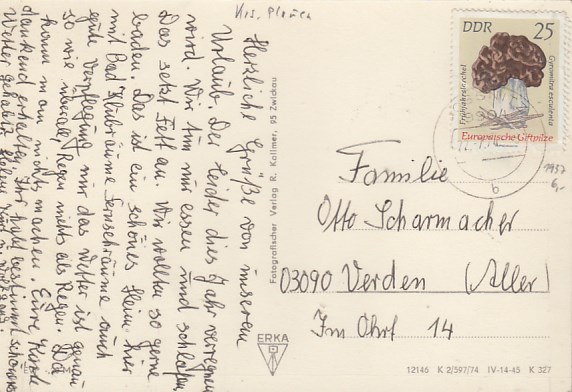 Krs. Plauen
Herzliche Grüße von unserem
Urlaub. Der leider dies Jahr verregnet
wird. Wir tun nur essen und schlafen
Das setzt Fett an. Wir wollten so gerne
baden. Das ist ein schönes Heim hier
mit Bad Klubräume Fernsehräume auch
gute Verpflegung nur das Wetter ist genau
so wie überall Regen nichts als Regen. Da
kann man nichts machen. Eure Karte
dankend erhalten Ihr habt bestimmt schöneres
Wetter gehabt.
Fotografischer Verlag R. Kollmer, 95 Zwickau
ERKA
DDR 25
Frühjahrslorchel
Gyromitra esculenta
Europäische Giftpilze
b
1957
6,-
Familie
Otto Scharmacher
03090 Verden (Aller)
Im Ohrt 14
12146 K 2/597/74 IV-14-45 K 327